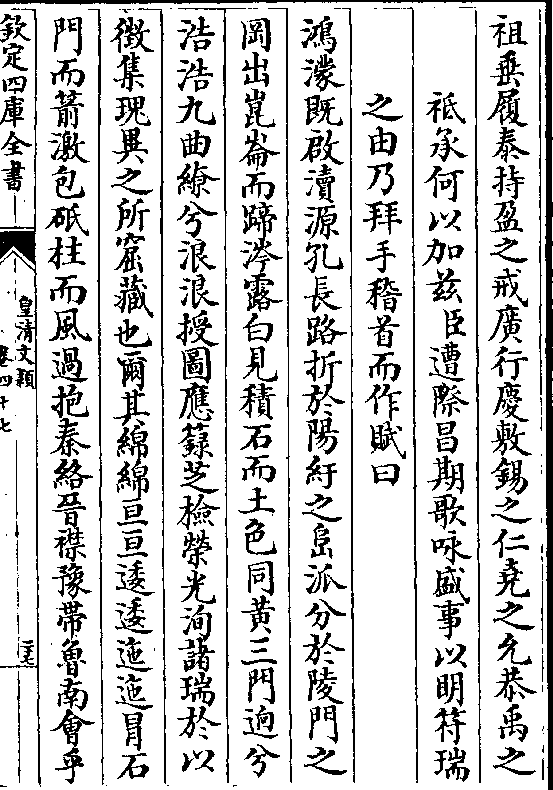 祖垂履泰持盈之戒廣行慶敷錫之仁堯之允恭禹之
祗承何以加兹臣遭際昌期歌咏盛事以明符瑞
之由乃拜手稽首而作賦曰
鴻濛既啟瀆源孔長路折於陽紆之島派分於陵門之
岡出崑崙而蹄涔露白見積石而土色同黄三門逈兮
浩浩九曲繚兮浪浪授圖應籙芝檢榮光洵諸瑞於以
徴集瑰異之所窟藏也爾其綿綿亘亘逶逶迤迤冐石
門而箭激包砥柱而風過抱秦絡晉襟豫帶魯南會乎
欽定四庫全書
皇清文穎
卷四十七